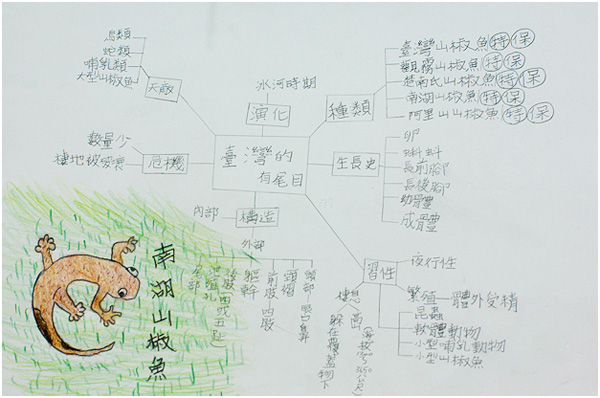 鳥類
蛇類
哺乳類
大型山椒魚
天敵
冰河時期
演化
種類
臺灣山椒魚 特 保
觀霧山椒魚 特 保
楚南氏山椒魚 特 保
南湖山椒魚 特 保
阿里山山椒魚 特 保
數量少
棲地被破壞
危機
臺灣的
有尾目
生長史
卵
蝌蚪
長前腳
長後腳
幼體
成體
內部
構造
外部
頭部 眼口鼻
頸褶
前肢 四肢
軀幹
後肢(四或五趾)
泄殖孔
尾部
習性
夜行性
繁殖 體外受精
昆蟲
軟體動物
小型哺乳動物
小型山椒魚
棲息
躲在覆蓋物下
南湖山椒魚